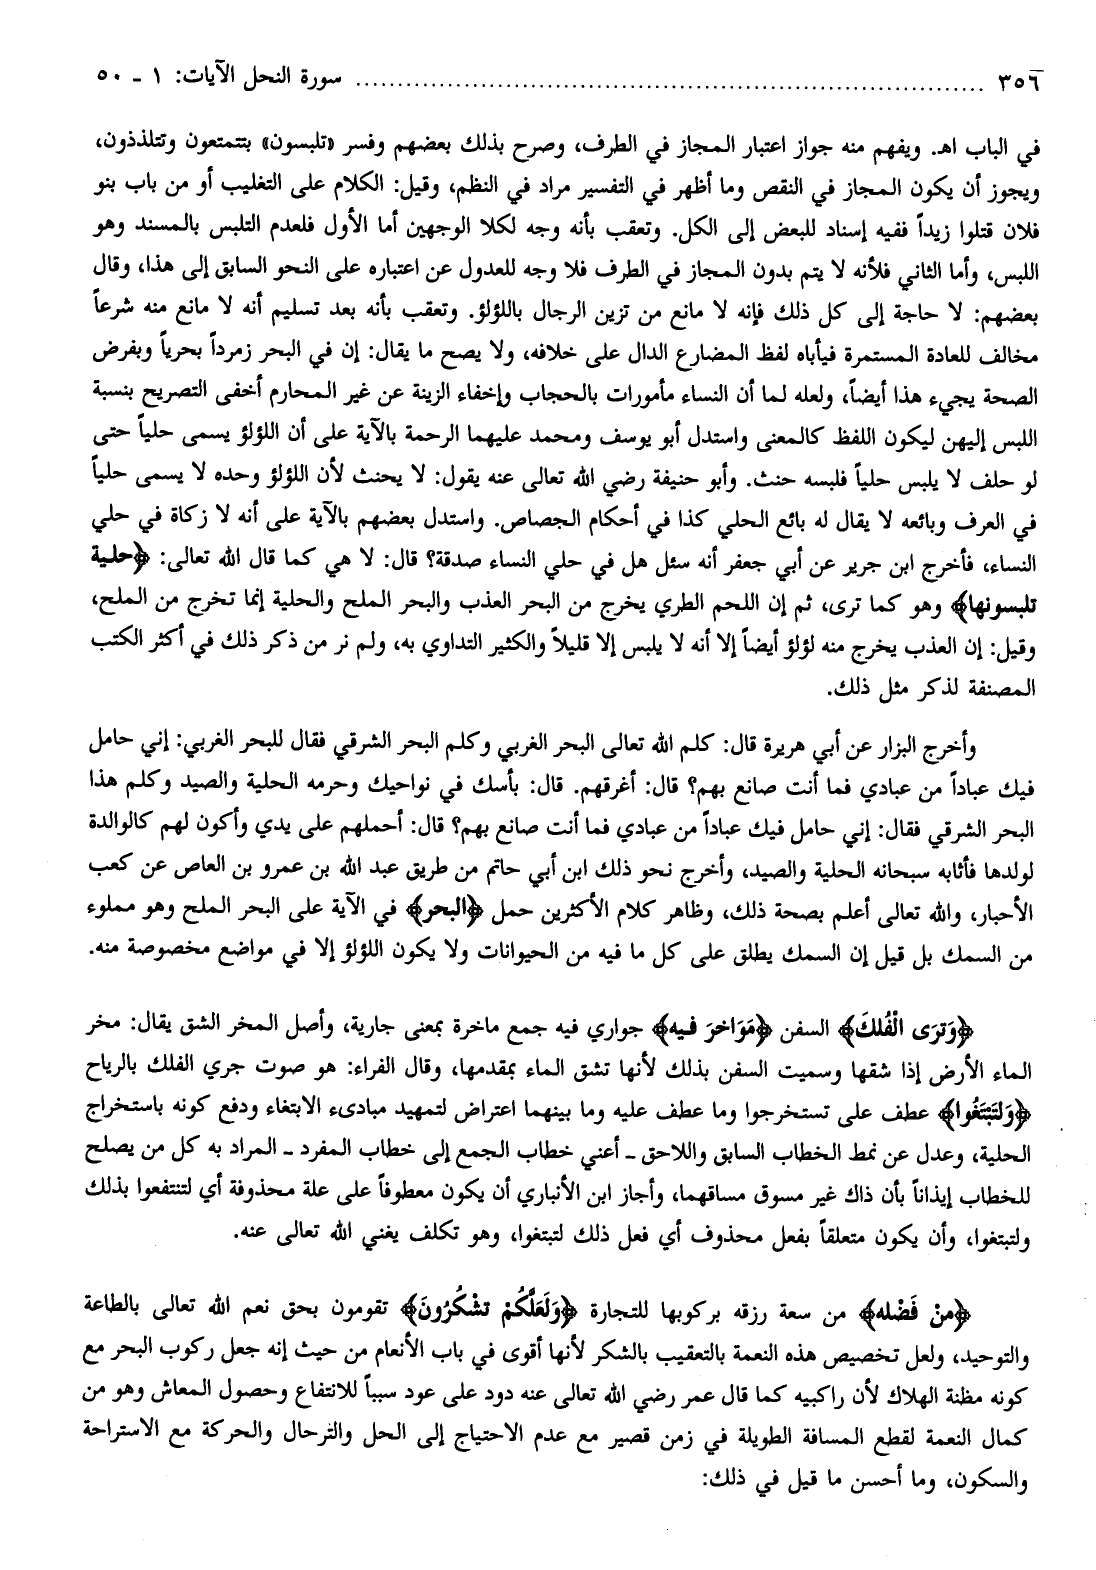 ٣٥٦ ........ سورة النحل الآيات: ١ ـ ٥٠
في الباب اهـ. ويفهم منه جواز اعتبار المجاز في الطرف، وصرح بذلك بعضهم وفسر «تلبسون» بتتمتعون وتتلذذون،
ويجوز أن يكون المجاز في النقص وما أظهر في التفسير مراد في النظم، وقيل: الكلام على التغليب أو من باب بنو
فلان قتلوا زيداً ففيه إسناد للبعض إلى الكل. وتعقب بأنه وجه لكلا الوجهين أما الأول فلعدم التلبس بالمسند وهو
اللبس، وأما الثاني فلأنه لا يتم بدون المجاز في الطرف فلا وجه للعدول عن اعتباره على النحو السابق إلى هذا، وقال
بعضهم: لا حاجة إلى كل ذلك فإنه لا مانع من تزين الرجال باللؤلؤ. وتعقب بأنه بعد تسليم أنه لا مانع منه شرعاً
مخالف للعادة المستمرة فيأباه لفظ المضارع الدال على خلافه، ولا يصح ما يقال: إن في البحر زمرداً بحرياً وبفرض
الصحة يجيء هذا أيضاً، ولعله لما أن النساء مأمورات بالحجاب وإخفاء الزينة عن غير المحارم أخفى التصريح بنسبة
اللبس إليهن ليكون اللفظ كالمعنى واستدل أبو يوسف ومحمد عليهما الرحمة بالآية على أن اللؤلؤ يسمى حلياً حتى
لو حلف لا يلبس حلياً فلبسه حنث. وأبو حنيفة رضي الله تعالى عنه يقول: لا يحنث لأن اللؤلؤ وحده لا يسمى حلياً
في العرف وبائعه لا يقال له بائع الحلي كذا في أحكام الجصاص. واستدل بعضهم بالآية على أنه لا زكاة في حلي
النساء، فأخرج ابن جرير عن أبي جعفر أنه سئل هل في حلي النساء صدقة؟ قال: لا هي كما قال الله تعالى: ﴿حلية
تلبسونها﴾ وهو كما ترى، ثم إن اللحم الطري يخرج من البحر العذب والبحر الملح والحلية إنما تخرج من الملح،
وقيل: إن العذب يخرج منه لؤلؤ أيضاً إلا أنه لا يلبس إلا قليلاً والكثير التداوي به، ولم نر من ذكر ذلك في أكثر الكتب
المصنفة لذكر مثل ذلك.
وأخرج البزار عن أبي هريرة قال: كلم الله تعالى البحر الغربي وكلم البحر الشرقي فقال للبحر الغربي: إني حامل
فيك عباداً من عبادي فما أنت صانع بهم؟ قال: أغرقهم. قال: بأسك في نواحيك وحرمه الحلية والصيد وكلم هذا
البحر الشرقي فقال: إني حامل فيك عباداً من عبادي فما أنت صانع بهم؟ قال: أحملهم على يدي وأكون لهم كالوالدة
لولدها فأثابه سبحانه الحلية والصيد، وأخرج نحو ذلك ابن أبي حاتم من طريق عبد الله بن عمرو بن العاص عن كعب
الأحبار، والله تعالى أعلم بصحة ذلك، وظاهر كلام الأكثرين حمل ﴿البحر﴾ في الآية على البحر الملح وهو مملوء
من السمك بل قيل إن السمك يطلق على كل ما فيه من الحيوانات ولا يكون اللؤلؤ إلا في مواضع مخصوصة منه.
﴿وَتَرَى الْفُلكَ﴾ السفن ﴿مَوَاخرَ فيه﴾ جواري فيه جمع ماخرة بمعنى جارية، وأصل المخر الشق يقال: مخر
الماء الأرض إذا شقها وسميت السفن بذلك لأنها تشق الماء بمقدمها، وقال الفراء: هو صوت جري الفلك بالرياح
﴿وَلتَبْتَغُوا﴾ عطف على تستخرجوا وما عطف عليه وما بينهما اعتراض لتمهيد مبادىء الابتغاء ودفع كونه باستخراج
الحلية، وعدل عن نمط الخطاب السابق واللاحق ـ أعني خطاب الجمع إلى خطاب المفرد ـ المراد به كل من يصلح
للخطاب إيذاناً بأن ذاك غير مسوق مساقهما، وأجاز ابن الأنباري أن يكون معطوفاً على علة محذوفة أي لتنتفعوا بذلك
ولتبتغوا، وأن يكون متعلقاً بفعل محذوف أي فعل ذلك لتبتغوا، وهو تكلف يغني الله تعالى عنه.
﴿منْ فَضْله﴾ من سعة رزقه بركوبها للتجارة ﴿وَلَعَلَّكُمْ تشْكُرُونَ﴾ تقومون بحق نعم الله تعالى بالطاعة
والتوحيد، ولعل تخصيص هذه النعمة بالتعقيب بالشكر لأنها أقوى في باب الأنعام من حيث إنه جعل ركوب البحر مع
كونه مظنة الهلاك لأن راكبيه كما قال عمر رضي الله تعالى عنه دود على عود سبباً للانتفاع وحصول المعاش وهو من
كمال النعمة لقطع المسافة الطويلة في زمن قصير مع عدم الاحتياج إلى الحل والترحال والحركة مع الاستراحة
والسكون، وما أحسن ما قيل في ذلك: